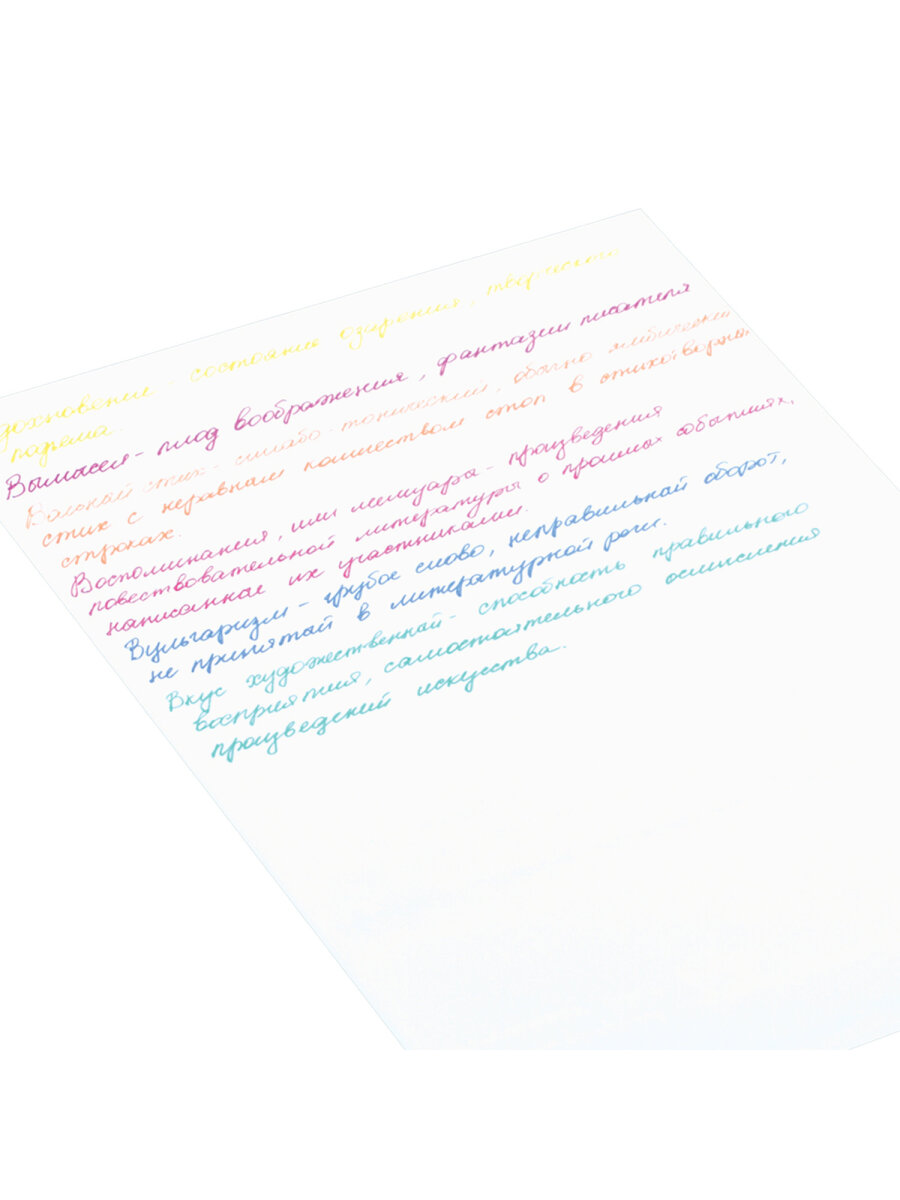 дохновение - состояние озарения, творческого
подъема.
Вымысел - плод воображения, фантазии писателя
Вольный стих - силлабо-тонический, обычно ямбический
стих с неравным количеством стоп в стихотворных
строках.
Воспоминания, или мемуары - произведения
повествовательной литературы о прошлых событиях,
написанные их участниками.
Вульгаризм - грубое слово, неправильный оборот,
не принятый в литературной речи.
Вкус художественный - способность правильного
восприятия, самостоятельного осмысления
произведений искусства.